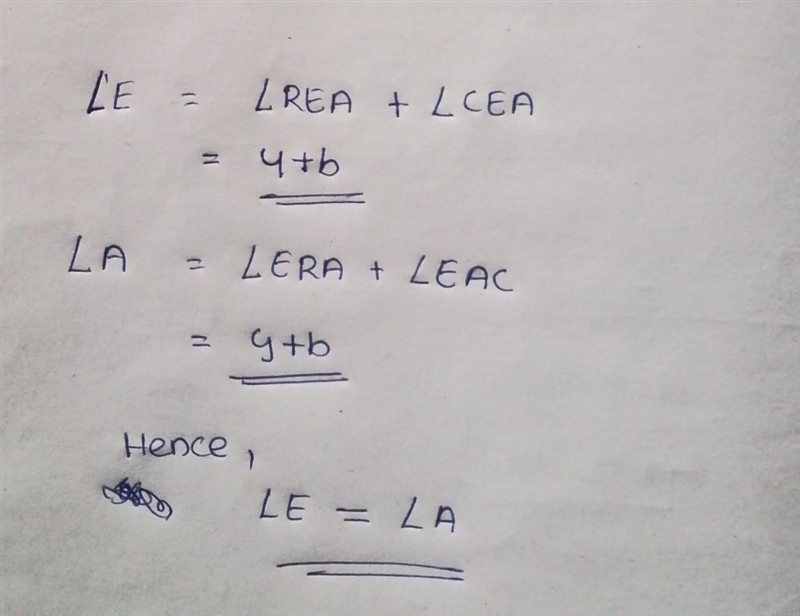 ∠E = ∠REA + ∠CEA
= y+b
∠A = ∠ERA + ∠EAC
= y+b
Hence,
∠E = ∠A